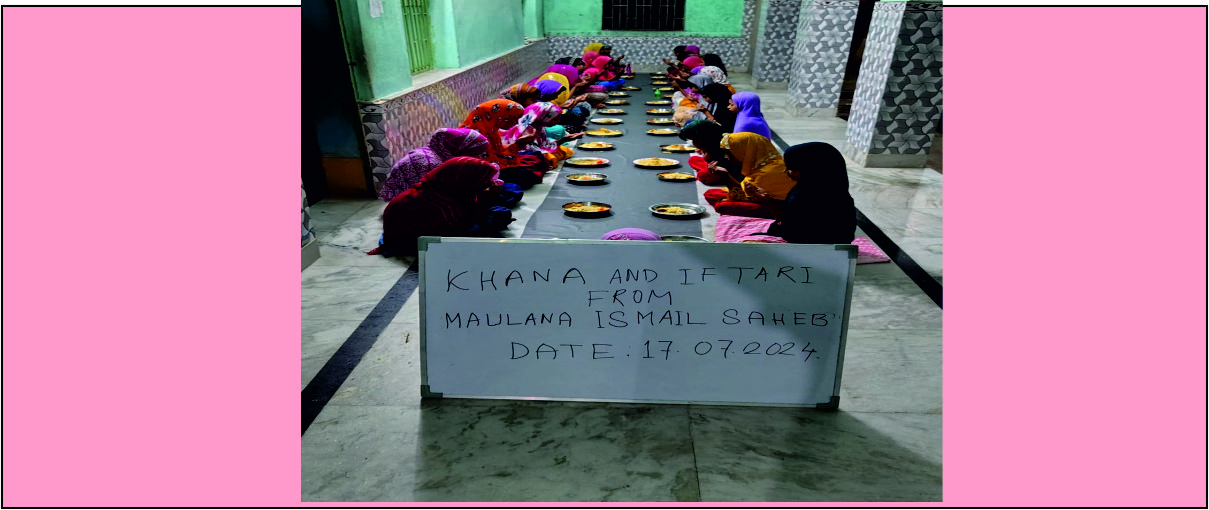 KHANA AND IFTARI
FROM
MAULANA ISMAIL SAHEB
DATE : 17.07.2024.